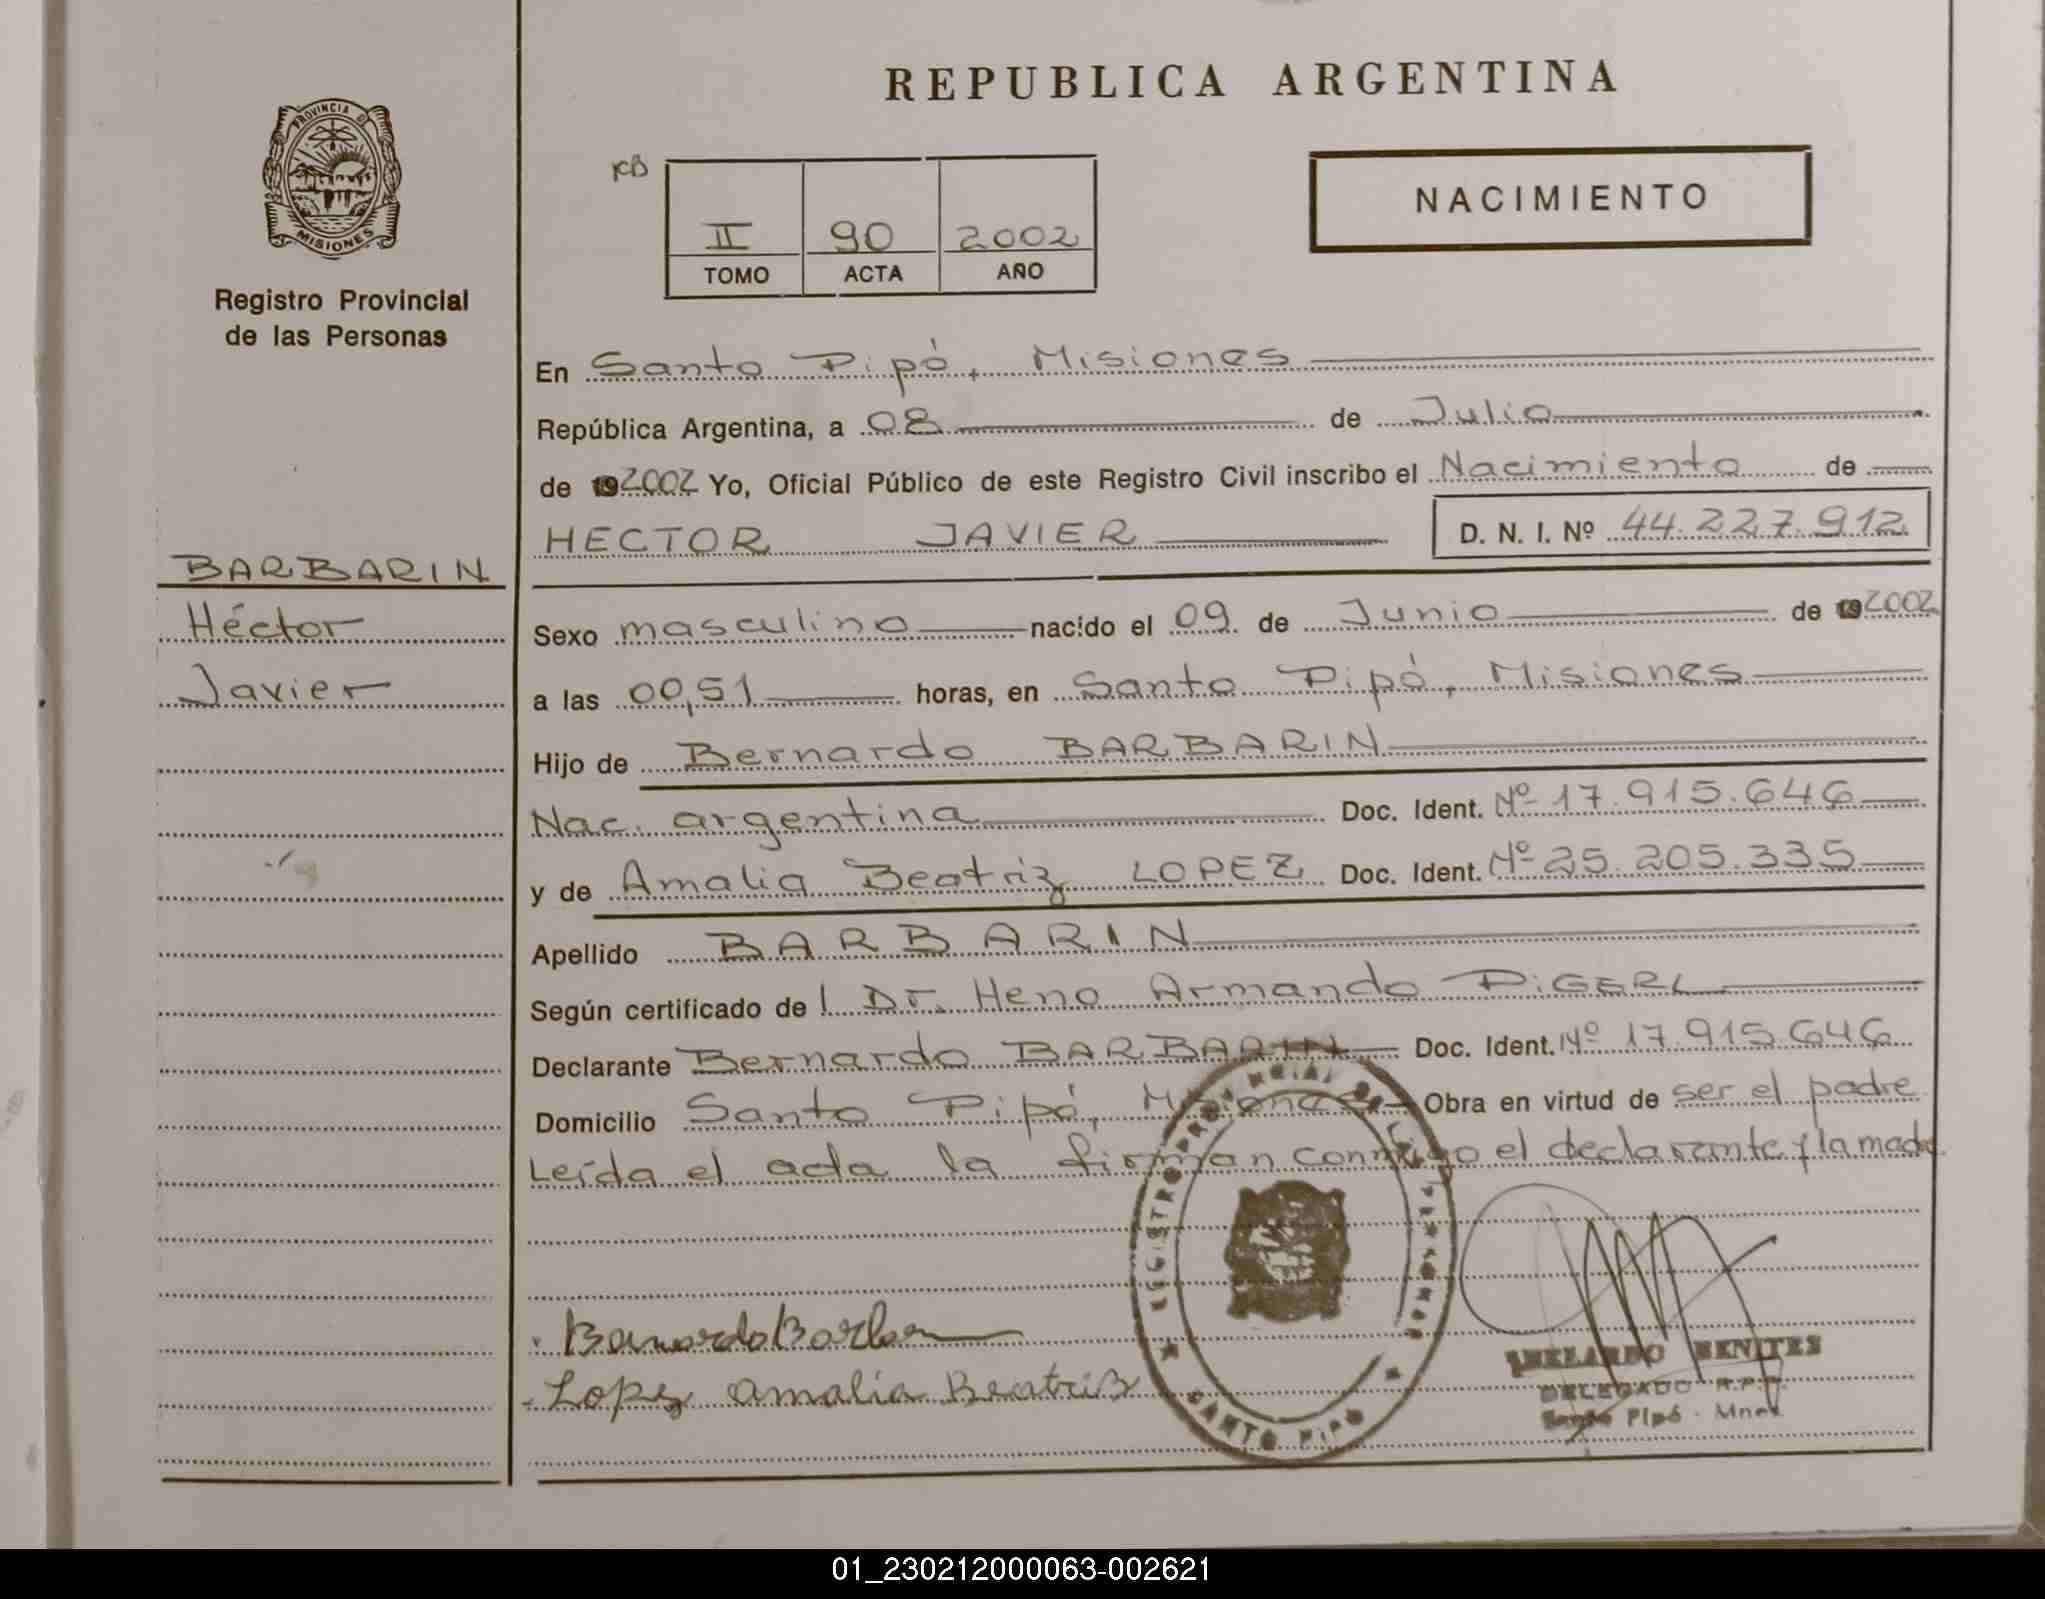 REPUBLICA ARGENTINA
PROVINCIA D
MISIONES
Registro Provincial
de las Personas
KB
NACIMIENTO
II 90 2002
TOMO ACTA AÑO
En Santo Pipó, Misiones
República Argentina, a 08 de Julio
de 192002 Yo, Oficial Público de este Registro Civil inscribo el Nacimiento de
HECTOR JAVIER D. N. I. Nº 44.227.912
BARBARIN
Héctor
Javier
Sexo masculino nacido el 09 de Junio de 192002
a las 00,51 horas, en Santo Pipó, Misiones
Hijo de Bernardo BARBARIN
Nac. argentina Doc. Ident. Nº 17.915.646
y de Amalia Beatriz LOPEZ Doc. Ident. Nº 25.205.335
Apellido BARBARIN
Según certificado de l Dr. Heno Armando DiGERL
Declarante Bernardo BARBARIN Doc. Ident. Nº 17.915.646
Domicilio Santo Pipó, Misiones Obra en virtud de ser el padre
Leída el acta la firman conmigo el declarante y la madre.
REGISTRO PROVINCIAL DE LAS PERSONAS
SANTO PIPO
Bernardo Barbarin
Lopez Amalia Beatriz
ABELARDO BENITES
DELEGADO R.P.P.
Santo Pipó - Mnes.
01_230212000063-002621